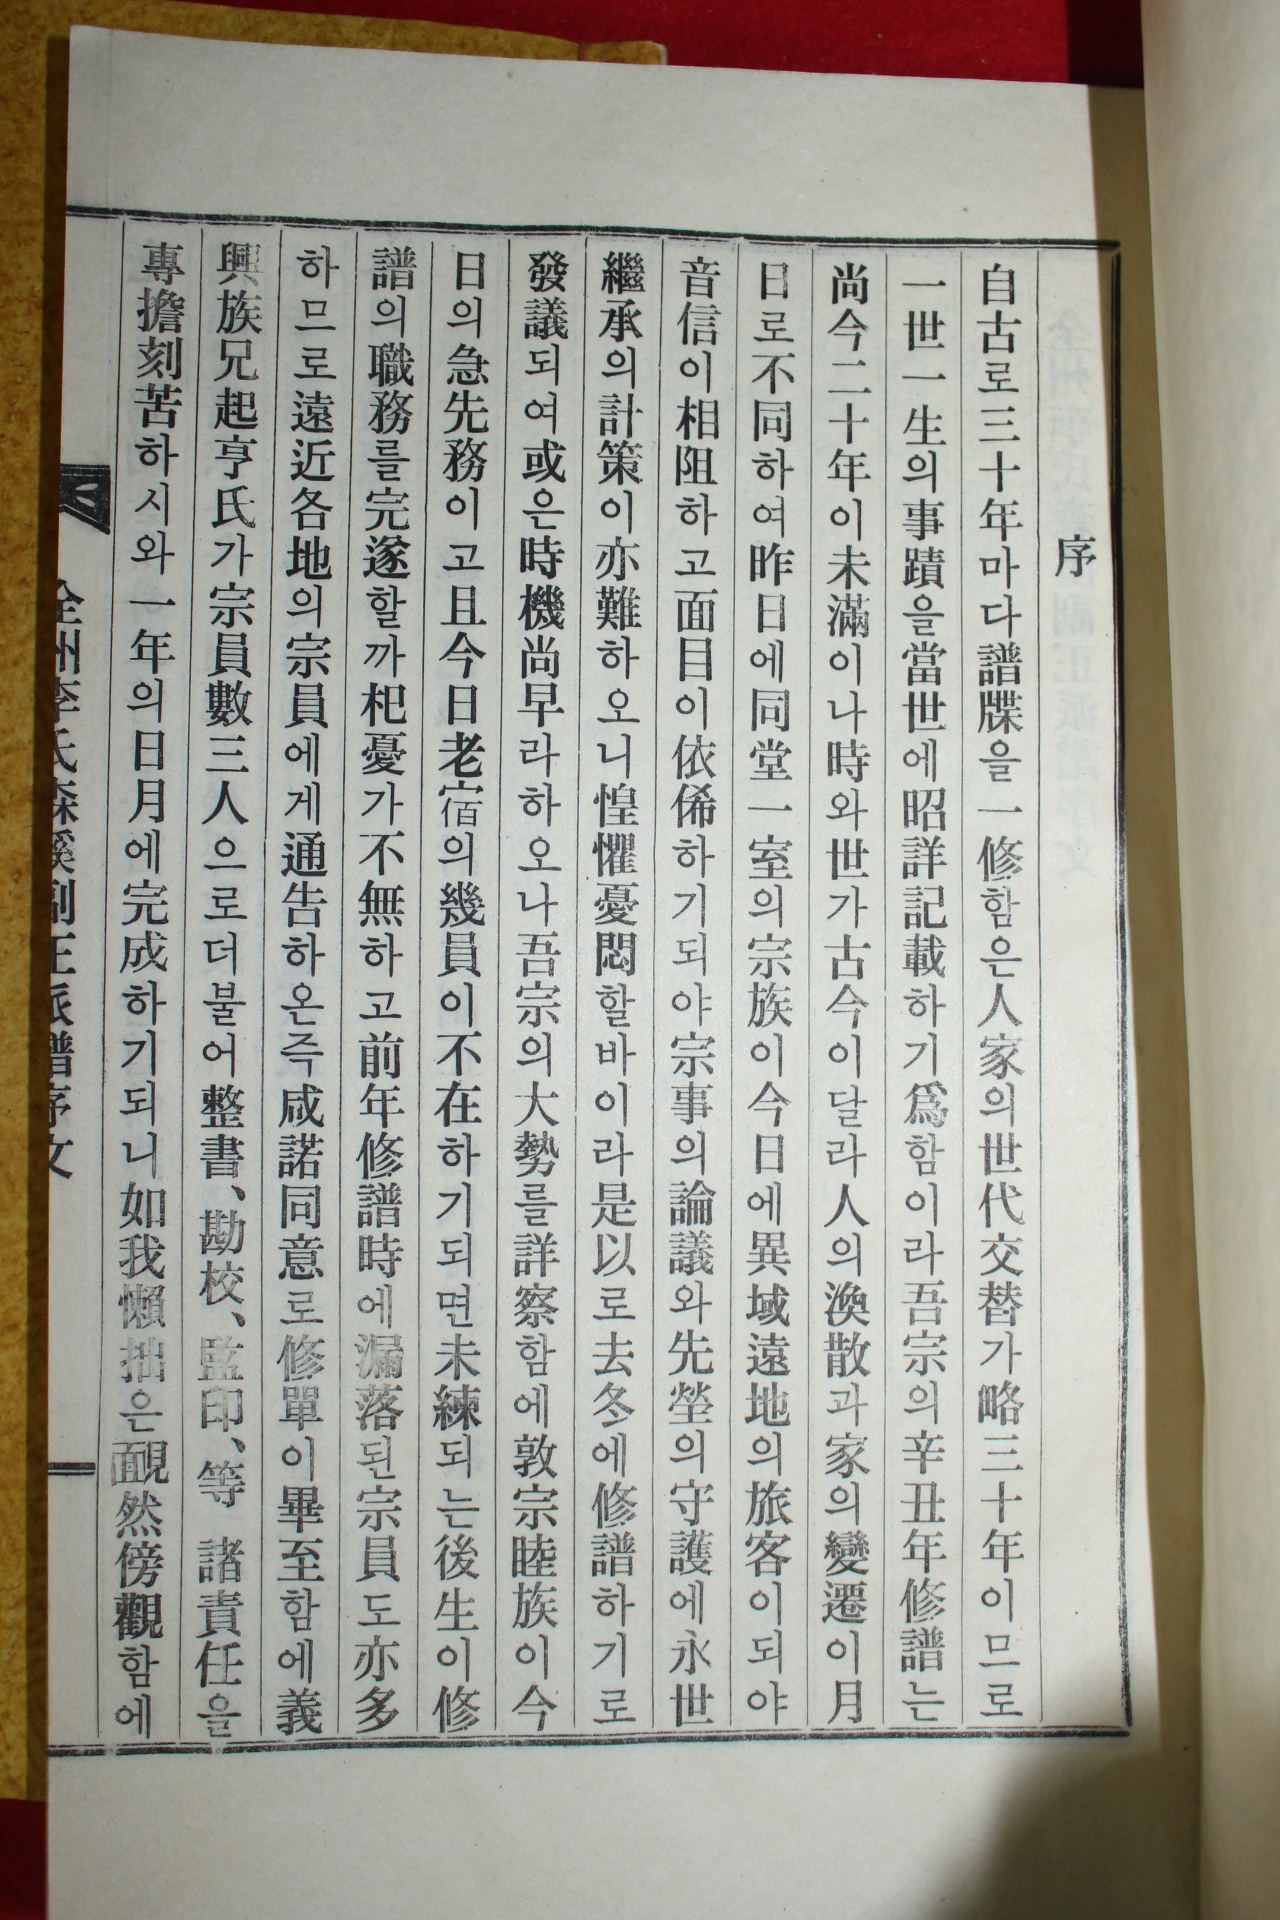 序
自古로三十年마다譜牒을一修함은人家의世代交替가略三十年이므로
一世一生의事蹟을當世에昭詳記載하기爲함이라吾宗의辛丑年修譜는
尚今二十年이未滿이나時와世가古今이달라人의渙散과家의變遷이月
日로不同하여昨日에同堂一室의宗族이今日에異域遠地의旅客이되야
音信이相阻하고面目이依俙하기되야宗事의論議와先塋의守護에永世
繼承의計策이亦難하오니惶懼憂悶할바이라是以로去冬에修譜하기로
發議되여或은時機尚早라하오나吾宗의大勢를詳察함에敦宗睦族이今
日의急先務이고且今日老宿의幾員이不在하기되면未練되는後生이修
譜의職務를完遂할까杞憂가不無하고前年修譜時에漏落된宗員도亦多
하므로遠近各地의宗員에게通告하온즉咸諾同意로修單이畢至함에義
興族兄起亨氏가宗員數三人으로더불어整書、勘校、監印、等 諸責任을
專擔刻苦하시와一年의日月에完成하기되니如我懶拙은靦然傍觀함에
全州李氏森溪副正派譜序文